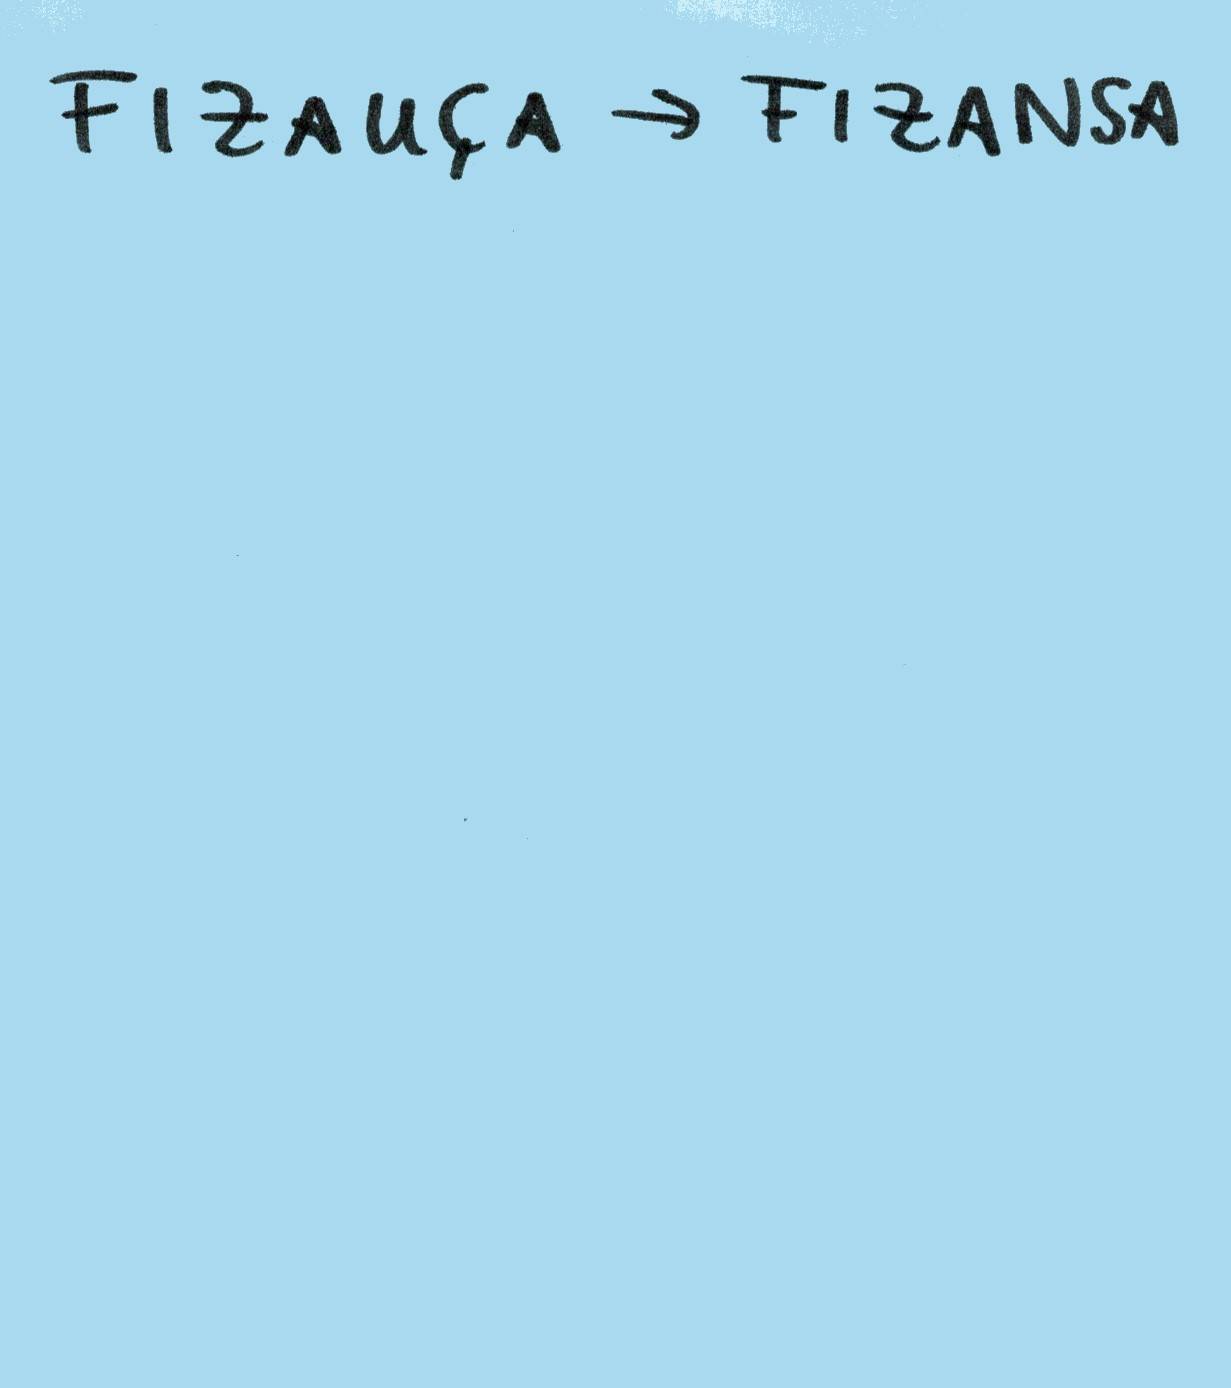 FIZAUÇA → FIZANSA